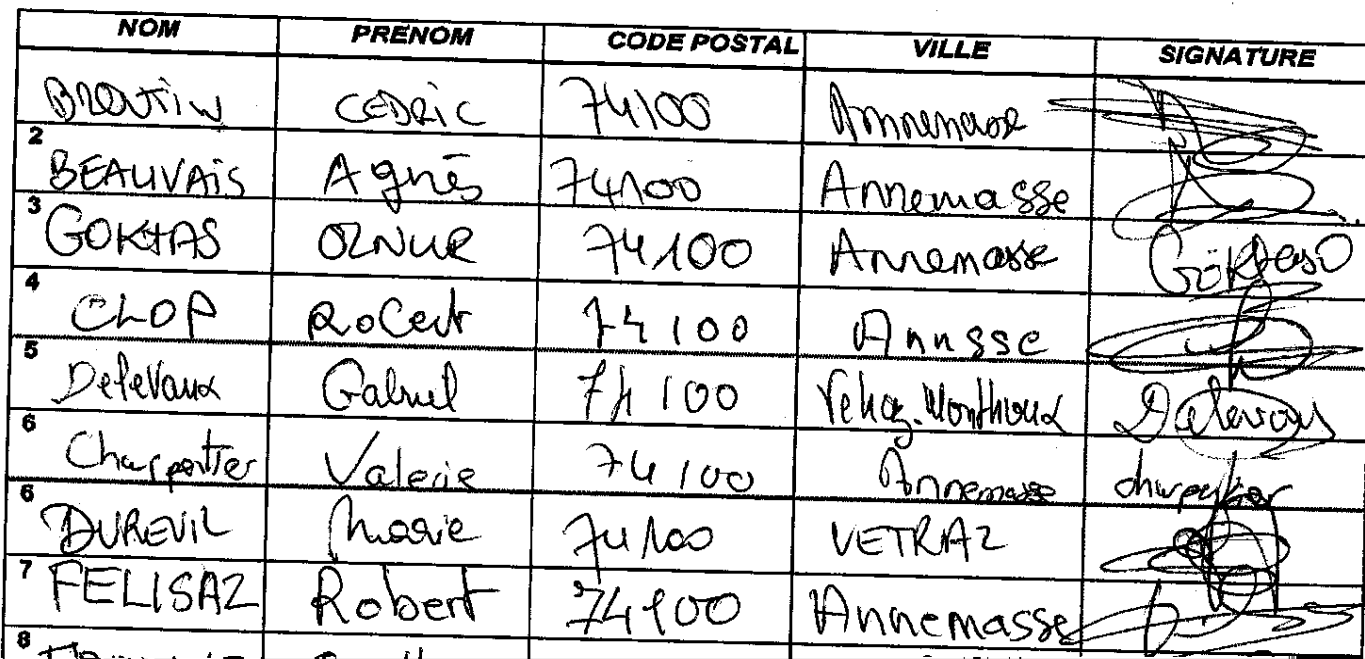 NOM PRENOM CODE POSTAL VILLE SIGNATURE
BROUTIN CEDRIC 74100 Annemasse
2
BEAUVAIS Agnès 74100 Annemasse
3
GOKTAS OZNUR 74100 Annemasse Göktas
4
CLOP 74100 Annsse
5
Delevaux Gabriel 74100
6
Charpentier Valerie 74100 Annemasse charpentier
6
DUREVIL Marie 74100 VETRAZ
7
FELISAZ Robert 74100 Annemasse
8